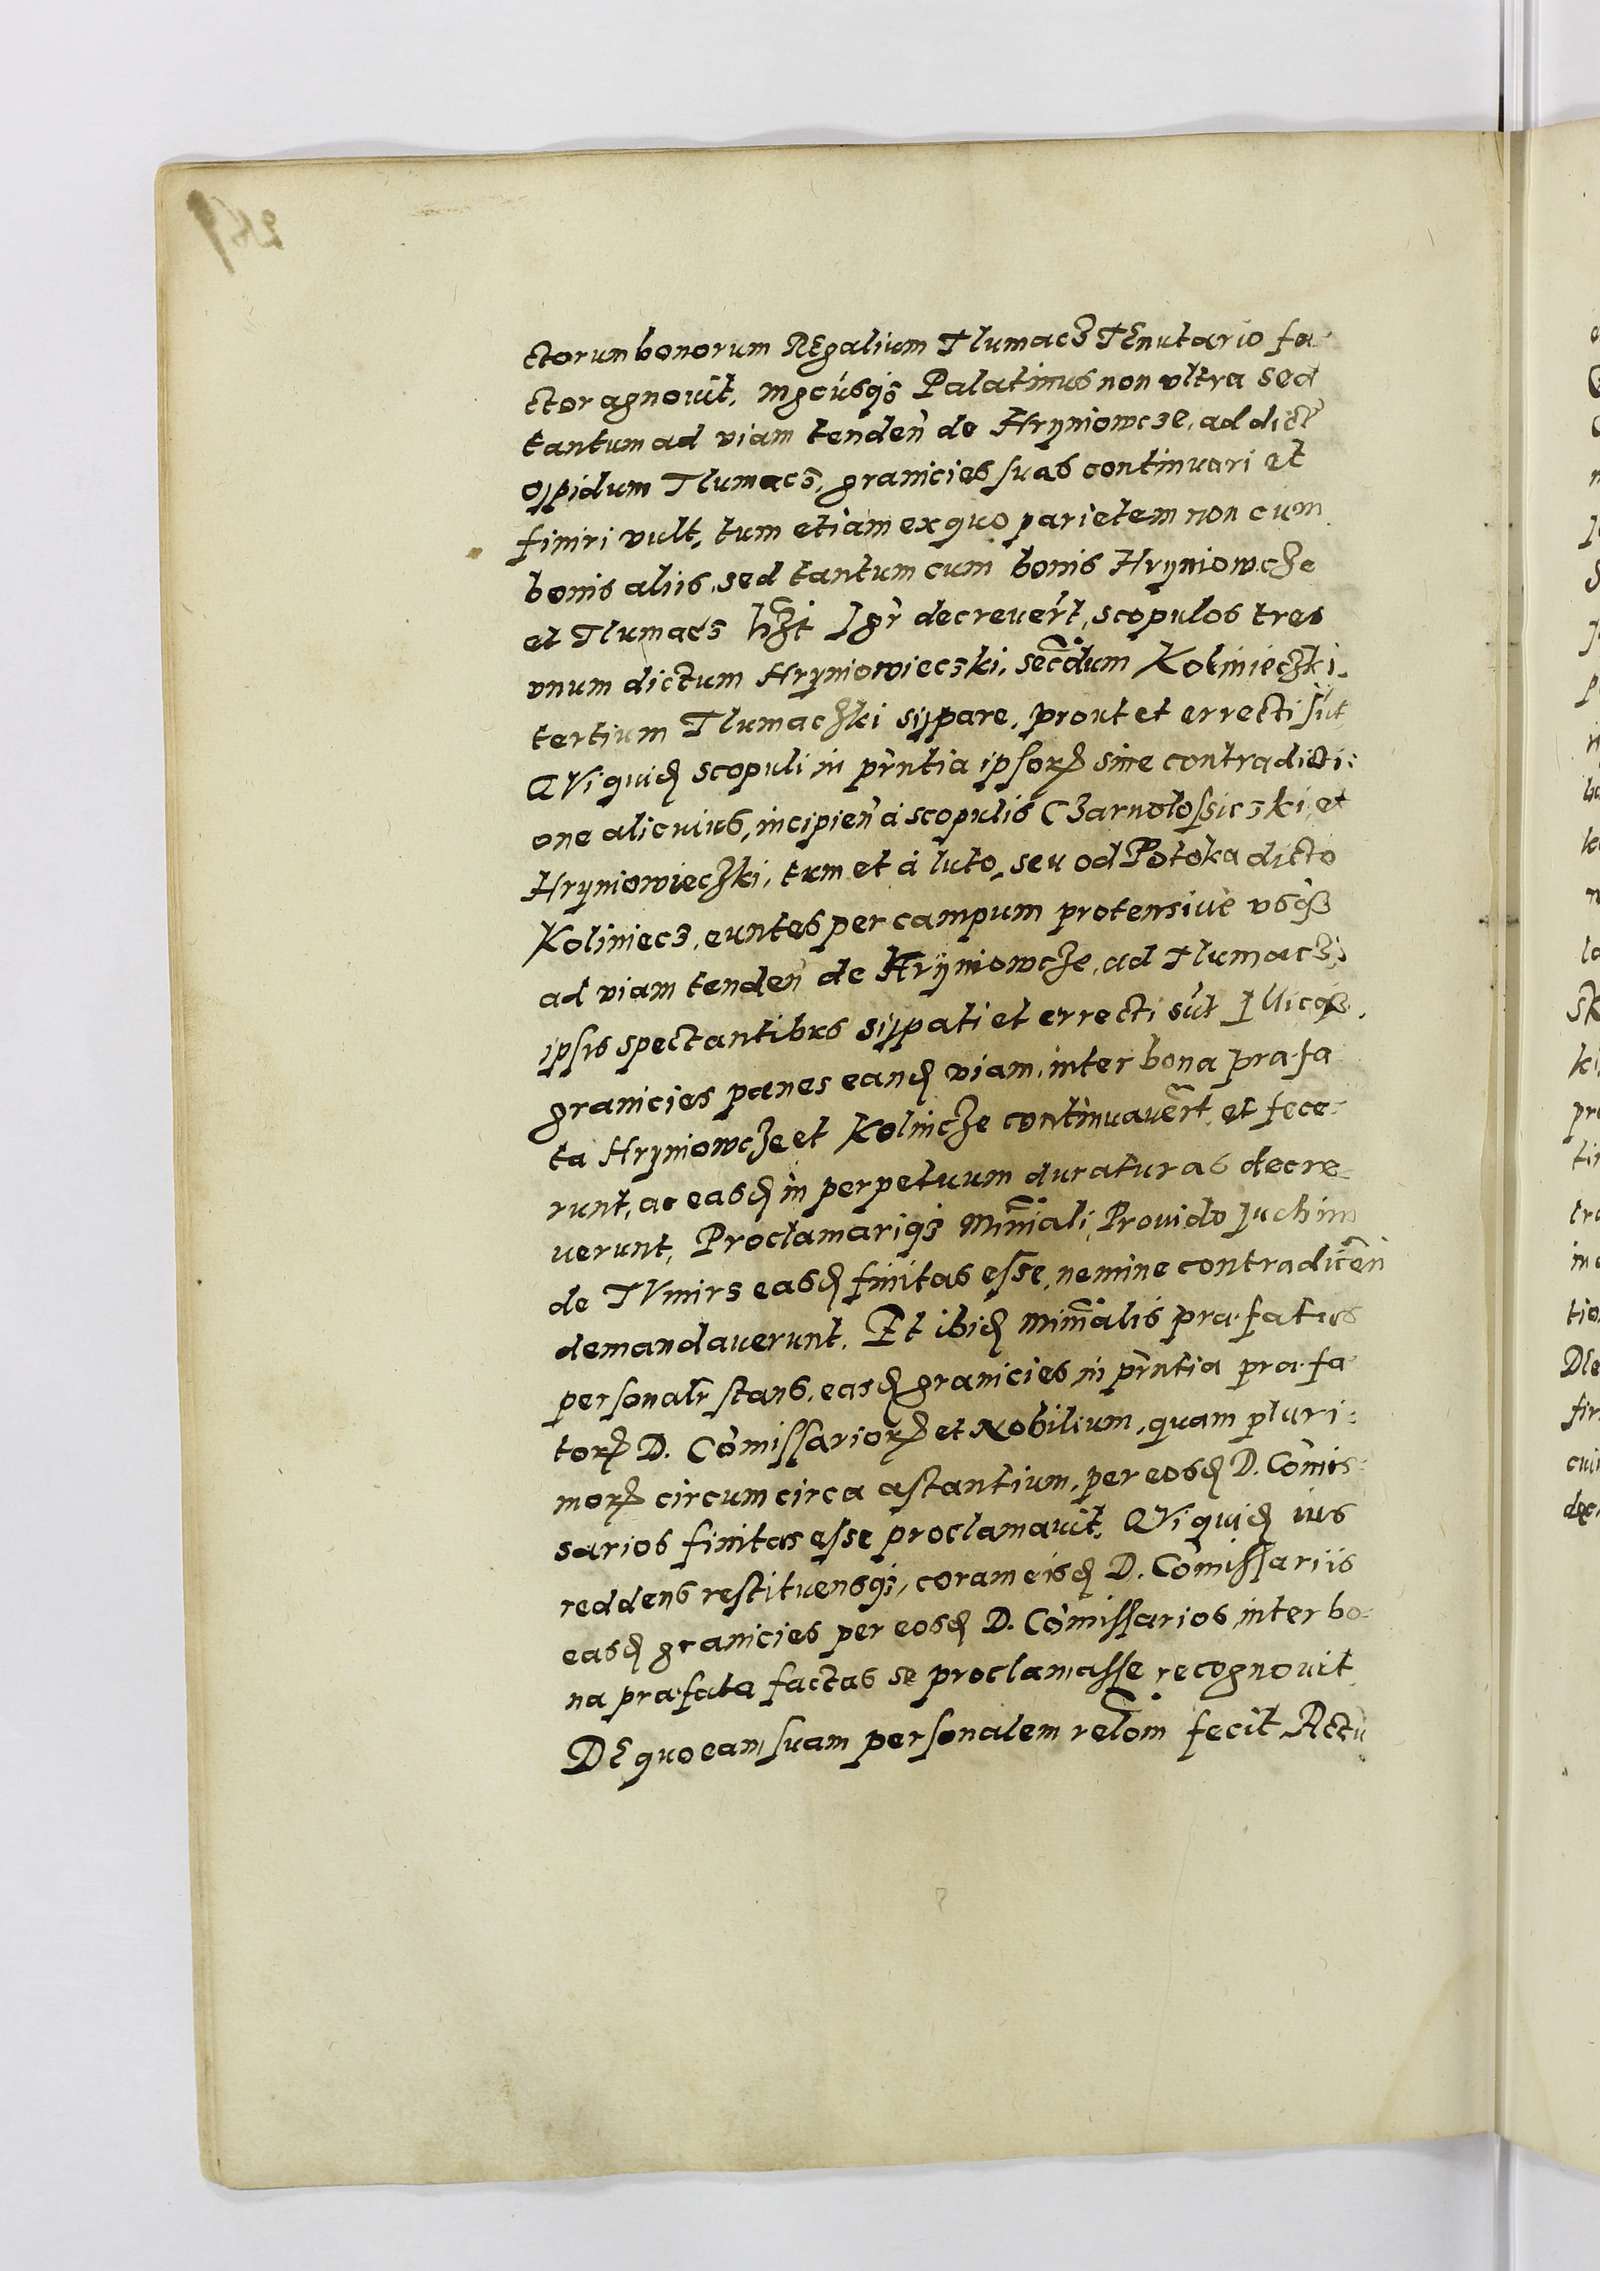 ctorum bonorum REgalium Tlumacz TEnutario fa-
ctor agnovit, Palatinus non vltra sed
tantum ad viam tendeñ de Hryniowcze, ad dict̃
oppidum Tlumacz, granicies suas continuari et
finiri vult, tum etiam ex quo parietem non cum
bonis aliis, sed tantum cum bonis Hryniowcze
et Tlumacz hẽt Igr̃ decrever̃t, scopulos tres
vnum dictum Hryniowieczki, secũdum Kolinieczki,
tertium Tlumaczki sippare, prout et errecti sũt
QVi quidẽ scopuli in pr̃ntia ipsorꝝ sine contradicti:
one alicuius, incipieñ à scopulis Czarnolossiczki, et
Hryniowieczki, tum et à luto, seu od Potoka dicto
Koliniecz, euntes per campum protensivè vsqꝫ
ad viam tendeñ de Hryniowcze, ad Tlumacz,
ipsis spectantibus sippati et errecti sũt Illicoqꝫ
granicies penes eandẽ viam, inter bona præfa
ta Hryniowcze et Kolincze continuaver̃t, et fece-
runt, ac easdẽ in perpetuum duraturas decre-
verunt, Proclamariqꝫ Minr̃iali, Prouido Juchno
de easdẽ finitas esse, nemine contradiceñ
demandaverunt. Et ibidẽ Miñialis præfatus
personalr̃ stans, easdẽ granicies in pr̃ntia præfa
torꝝ D. Cõmissariorꝝ et Nobilium, quam pluri:
morꝝ circumcirca astantium, per eosdẽ D. Cõmis-
sarios finitas esse proclamavit. QVi quidẽ ius
reddens restituensqꝫ, coram eisdẽ D. Cõmissariis
easdẽ granicies per eosdẽ D. Cõmissarios, inter bo-
na præfata factas se proclamasse recognovit
DE quo eam suam personalem relõm fecit Actũ